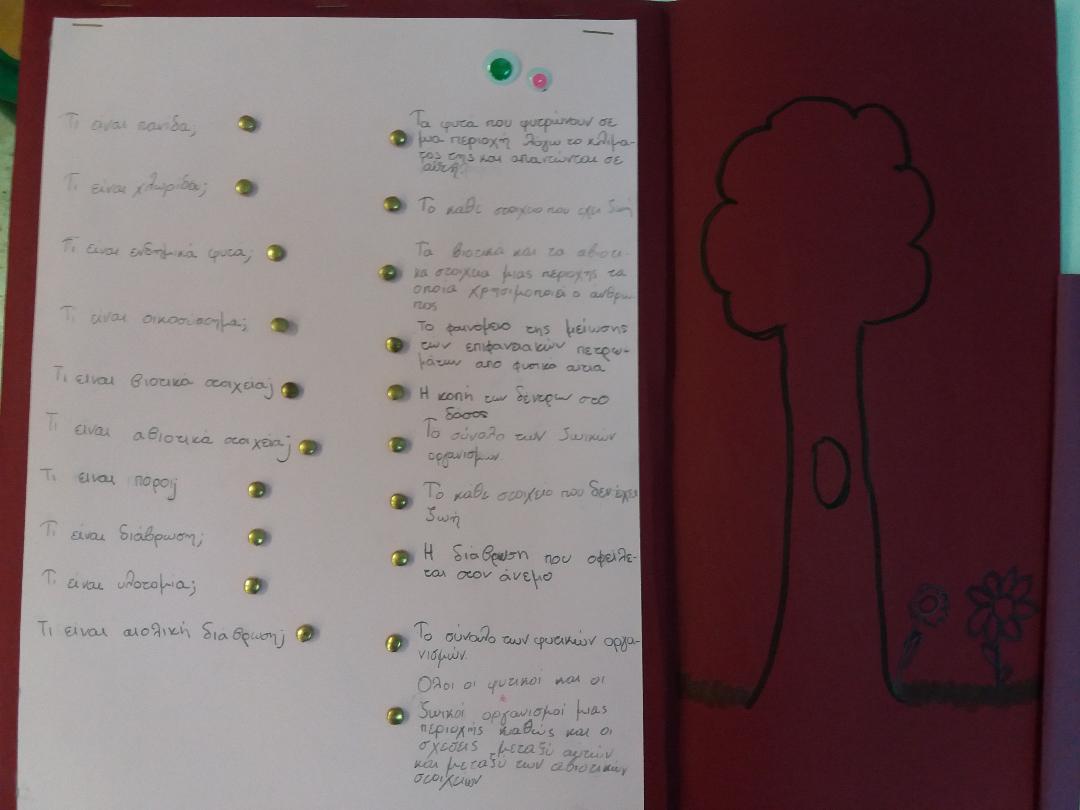 Τι ειναι πανίδα;
Τι είναι χλωρίδα;
Τι είναι ενδημικά φυτα;
Τι είναι οικοσύστημα;
Τι ειναι βιοτικά στοιχεια;
Τι ειναι αβιοτικά στοιχεία;
Τι ειναι πόροι;
Τι είναι διάβρωση;
Τι είναι υλοτομια;
Τι είναι αιολική διάβρωση;
Τα φυτα που φυτρώνουν σε
μια περιοχή λόγω το κλίμα-
τος της και απαντώνται σε
αυτή.
Το καθε στοιχειο που εχει ζωή
Τα βιοτικά και τα αβιοτι-
κα στοιχεια μιας περιοχής τα
οποια χρησιμοποιεί ο άνθρω-
πος
Το φαινομενο της μείωσης
των επιφανειακών πετρω-
μάτων απο φυσικα αιτια
Η κοπή των δεντρων στο
δάσος
Το σύνολο των ζωικών
οργανισμων.
Το κάθε στοιχείο που δεν έχει
ζωή
Η διάβρωση που οφείλε-
ται στον άνεμο
Το σύνολο των φυτικών οργα-
νισμών.
Ολοι οι φυτικοί και οι
ζωικοί οργανισμοί μιας
περιοχής καθώς και οι
σχεσεις μεταξύ αυτών
και μεταξύ των αβιοτικών
στοιχειων